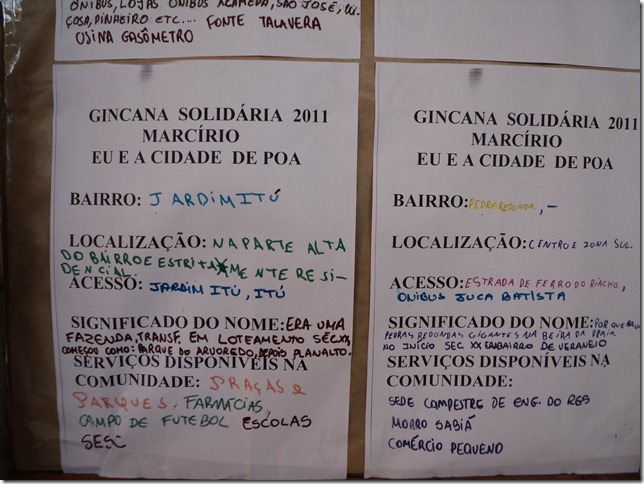 ÔNIBUS, LOJAS ÔNIBUS ALAMEDA, SÃO JOSÉ,
ÇOSA, DINHEIRO ETC.... FONTE TALAVERA
USINA GASÔMETRO
GINCANA SOLIDÁRIA 2011
MARCÍRIO
EU E A CIDADE DE POA
BAIRRO: JARDIM ITÚ
LOCALIZAÇÃO: NA PARTE ALTA
DO BAIRRO E ESTRITAMENTE RESI-
DENCIAL.
ACESSO: JARDIM ITÚ, ITÚ
SIGNIFICADO DO NOME: ERA UMA
FAZENDA, TRANSF. EM LOTEAMENTO SÉC XX,
COMEÇOU COMO: PARQUE DO ARVOREDO, DEPOIS PLANALTO.
SERVIÇOS DISPONÍVEIS NA
COMUNIDADE: PRAÇAS E
PARQUES, FARMÁCIAS,
CAMPO DE FUTEBOL ESCOLAS
SESC
GINCANA SOLIDÁRIA 2011
MARCÍRIO
EU E A CIDADE DE POA
BAIRRO: PEDRA REDONDA, -
LOCALIZAÇÃO: CENTRO E ZONA SUL.
ACESSO: ESTRADA DE FERRO DO RIACHO,
ÔNIBUS JUCA BATISTA
SIGNIFICADO DO NOME: POR QUE
PEDRAS REDONDAS GIGANTES NA BEIRA DA PRAIA
NO INÍCIO SEC XX ERA BAIRRO DE VERANEIO
SERVIÇOS DISPONÍVEIS NA
COMUNIDADE:
SEDE CAMPESTRE DE ENG. DO RGS
MORRO SABIÁ
COMÉRCIO PEQUENO